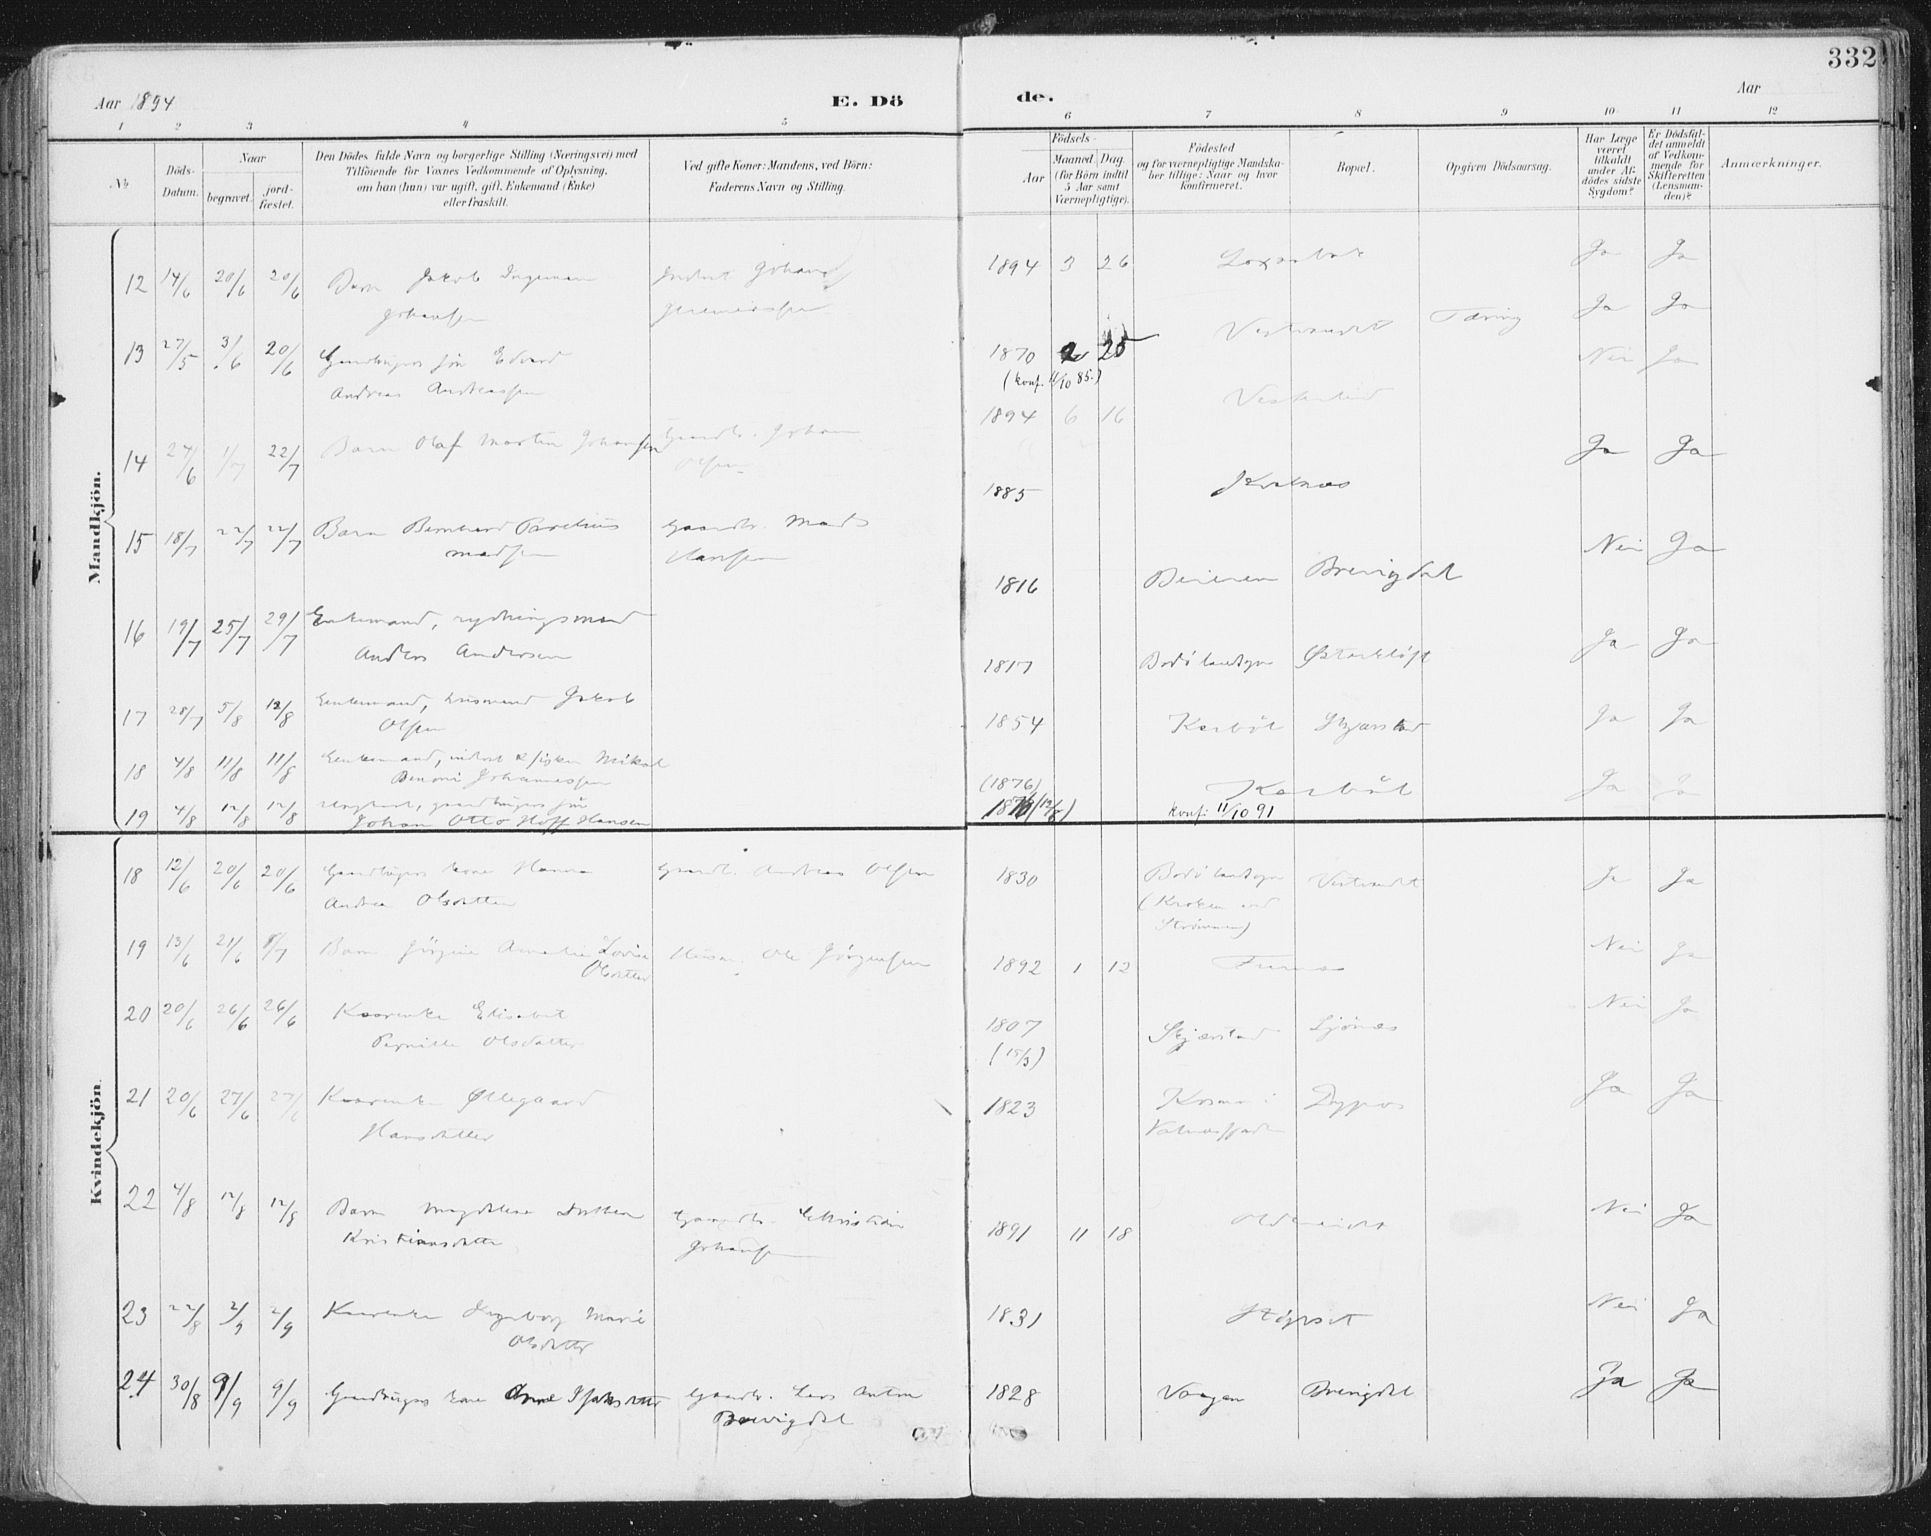 332
Aar 1894
E. Dö
de.
Aar
1 2 3 4 5 6 7 8 9 10 11 12
No
Döds-Datum.
Naar
begravet.
jord-fæstet.
Den Dödes fulde Navn og borgerlige Stilling (Næringsvei) med
Tilföiende for Voxnes Vedkommende af Oplysning,
om han (hun) var ugift, gift, Enkemand (Enke)
eller fraskilt.
Ved gifte Koner: Mandens, ved Börn:
Faderens Navn og Stilling.
Födsels-
Aar
Maaned. Dag.
(for Börn indtil
5 Aar samt
Værnepligtige).
Födested
og for værnepligtige Mandska-
ber tillige: Naar og hvor
konfirmeret.
Bopæl.
Opgiven Dödsaarsag.
Har Læge
været
tilkaldt
under Af-
dödes sidste
Sygdom?
Er Dödsfal-
det anmeldt
af Vedkom-
mende for
Skifteretten
(Lensman-
den)?
Anmærkninger.
Mandkjön.
12 14/6 20/6 20/6 Barn Jakob Ingeman Johansen
1894 3 26 Ja Ja
13 27/5 3/6 20/6 Gaardbrugers sön Edvard
Andreas Andreassen
1870 2 25 Vestvandet Tæring Ja Ja
(konf. 11/10 85.)
14 27/6 1/7 22/7 Barn Olaf Martin Johansen Gaardbr. Johan
Olsen
1894 6 16 Nei Ja
15 18/7 22/7 22/7 Barn Bernhard Parelius
Madsen
Gaardbr. Mads
Hansen
1885 Kvalnæs Ja Ja
16 19/7 25/7 29/7 Enkemand, rydningsmand
Anders Andersen
1816 Beieren Brevigdal Nei Ja
17 28/7 5/8 12/8 Enkemand, husmand Jakob
Olsen
1817 Bodö landsogn Østerklöft Ja Ja
18 4/8 11/8 11/8 Enkemand, inderst & fisker Mikal
Benoni Johannessen
1854 Kosböl Skjærstad Ja Ja
19 4/8 12/8 12/8 Ungkarl, gaardbrugers sön
Johan Otto Hoff Hansen
(1876) Kosböl Ja Ja
konf. 11/10 91
Kvindekjön.
18 12/6 20/6 20/6 Gaardbrugers kone Hanna
Andrea Olsdatter
Gaardb. Andreas Olsen
1830 Bodö landsogn
(Kroken ved
Strömmen)
Vestvandet Ja Ja
19 13/6 21/6 8/7 Barn Jörgine Amalie Lovise
Olsdatter
Husm. Ole Jörgensen
1892 1 12 Furnes Nei Ja
20 20/6 26/6 26/6 Kaarenke Elisabet
Pernille Olsdatter
1807
(15/3)
Skjærstad Ljönæs Nei Ja
21 20/6 27/6 27/6 Kaarenke Øllegaard
Hansdatter
1823 Kosmo i
Valnesfjorden
Ja Ja
22 4/8 12/8 12/8 Barn Magdalena
Kristiansdatter
Gaardbr. Christian
Johansen
1891 11 18 Nei Ja
23 22/8 2/9 2/9 Kaarenke Ingeborg Marie
Olsdatter
1831 Nei Ja
24 30/8 9/9 9/9 Gaardbrugers kone Isaksdatter
Gaardbr. Lars Anton
Brevigdal
1828 Vaagan Brevigdal Ja Ja